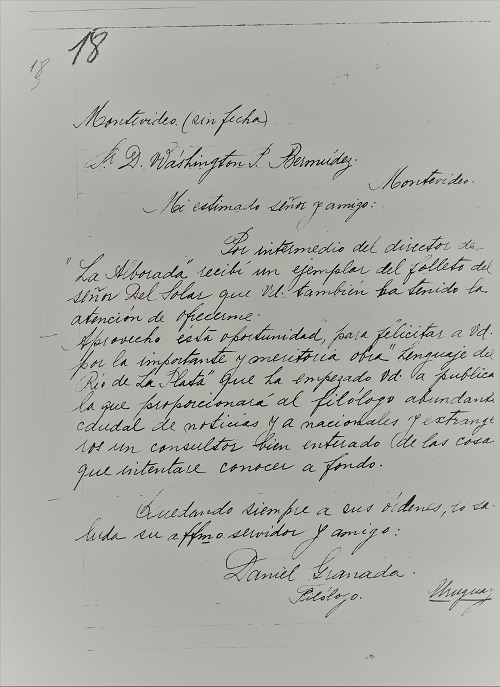 18
18
Montevideo (sin fecha)
Sr. D. Wáshington P. Bermúdez.
Montevideo.
Mi estimado señor y amigo:
Por intermedio del director de
"La Alborada" recibí un ejemplar del folleto del
señor Del Solar que Vd. también ha tenido la
atención de ofrecerme.
Aprovecho ésta oportunidad, para felicitar a Vd.
por la importante y meritoria obra Lenguaje del
Río de La Plata" que ha empezado Vd. a publica
la que proporcionará al filólogo abundante
caudal de noticias y a nacionales y extranje
ros un consultor bien enterado de las cosa
que intentare conocer a fondo.
Quedando siempre a sus órdenes, lo sa-
luda su affmo servidor y amigo:
Daniel Granada.
Filólogo.
Uruguay